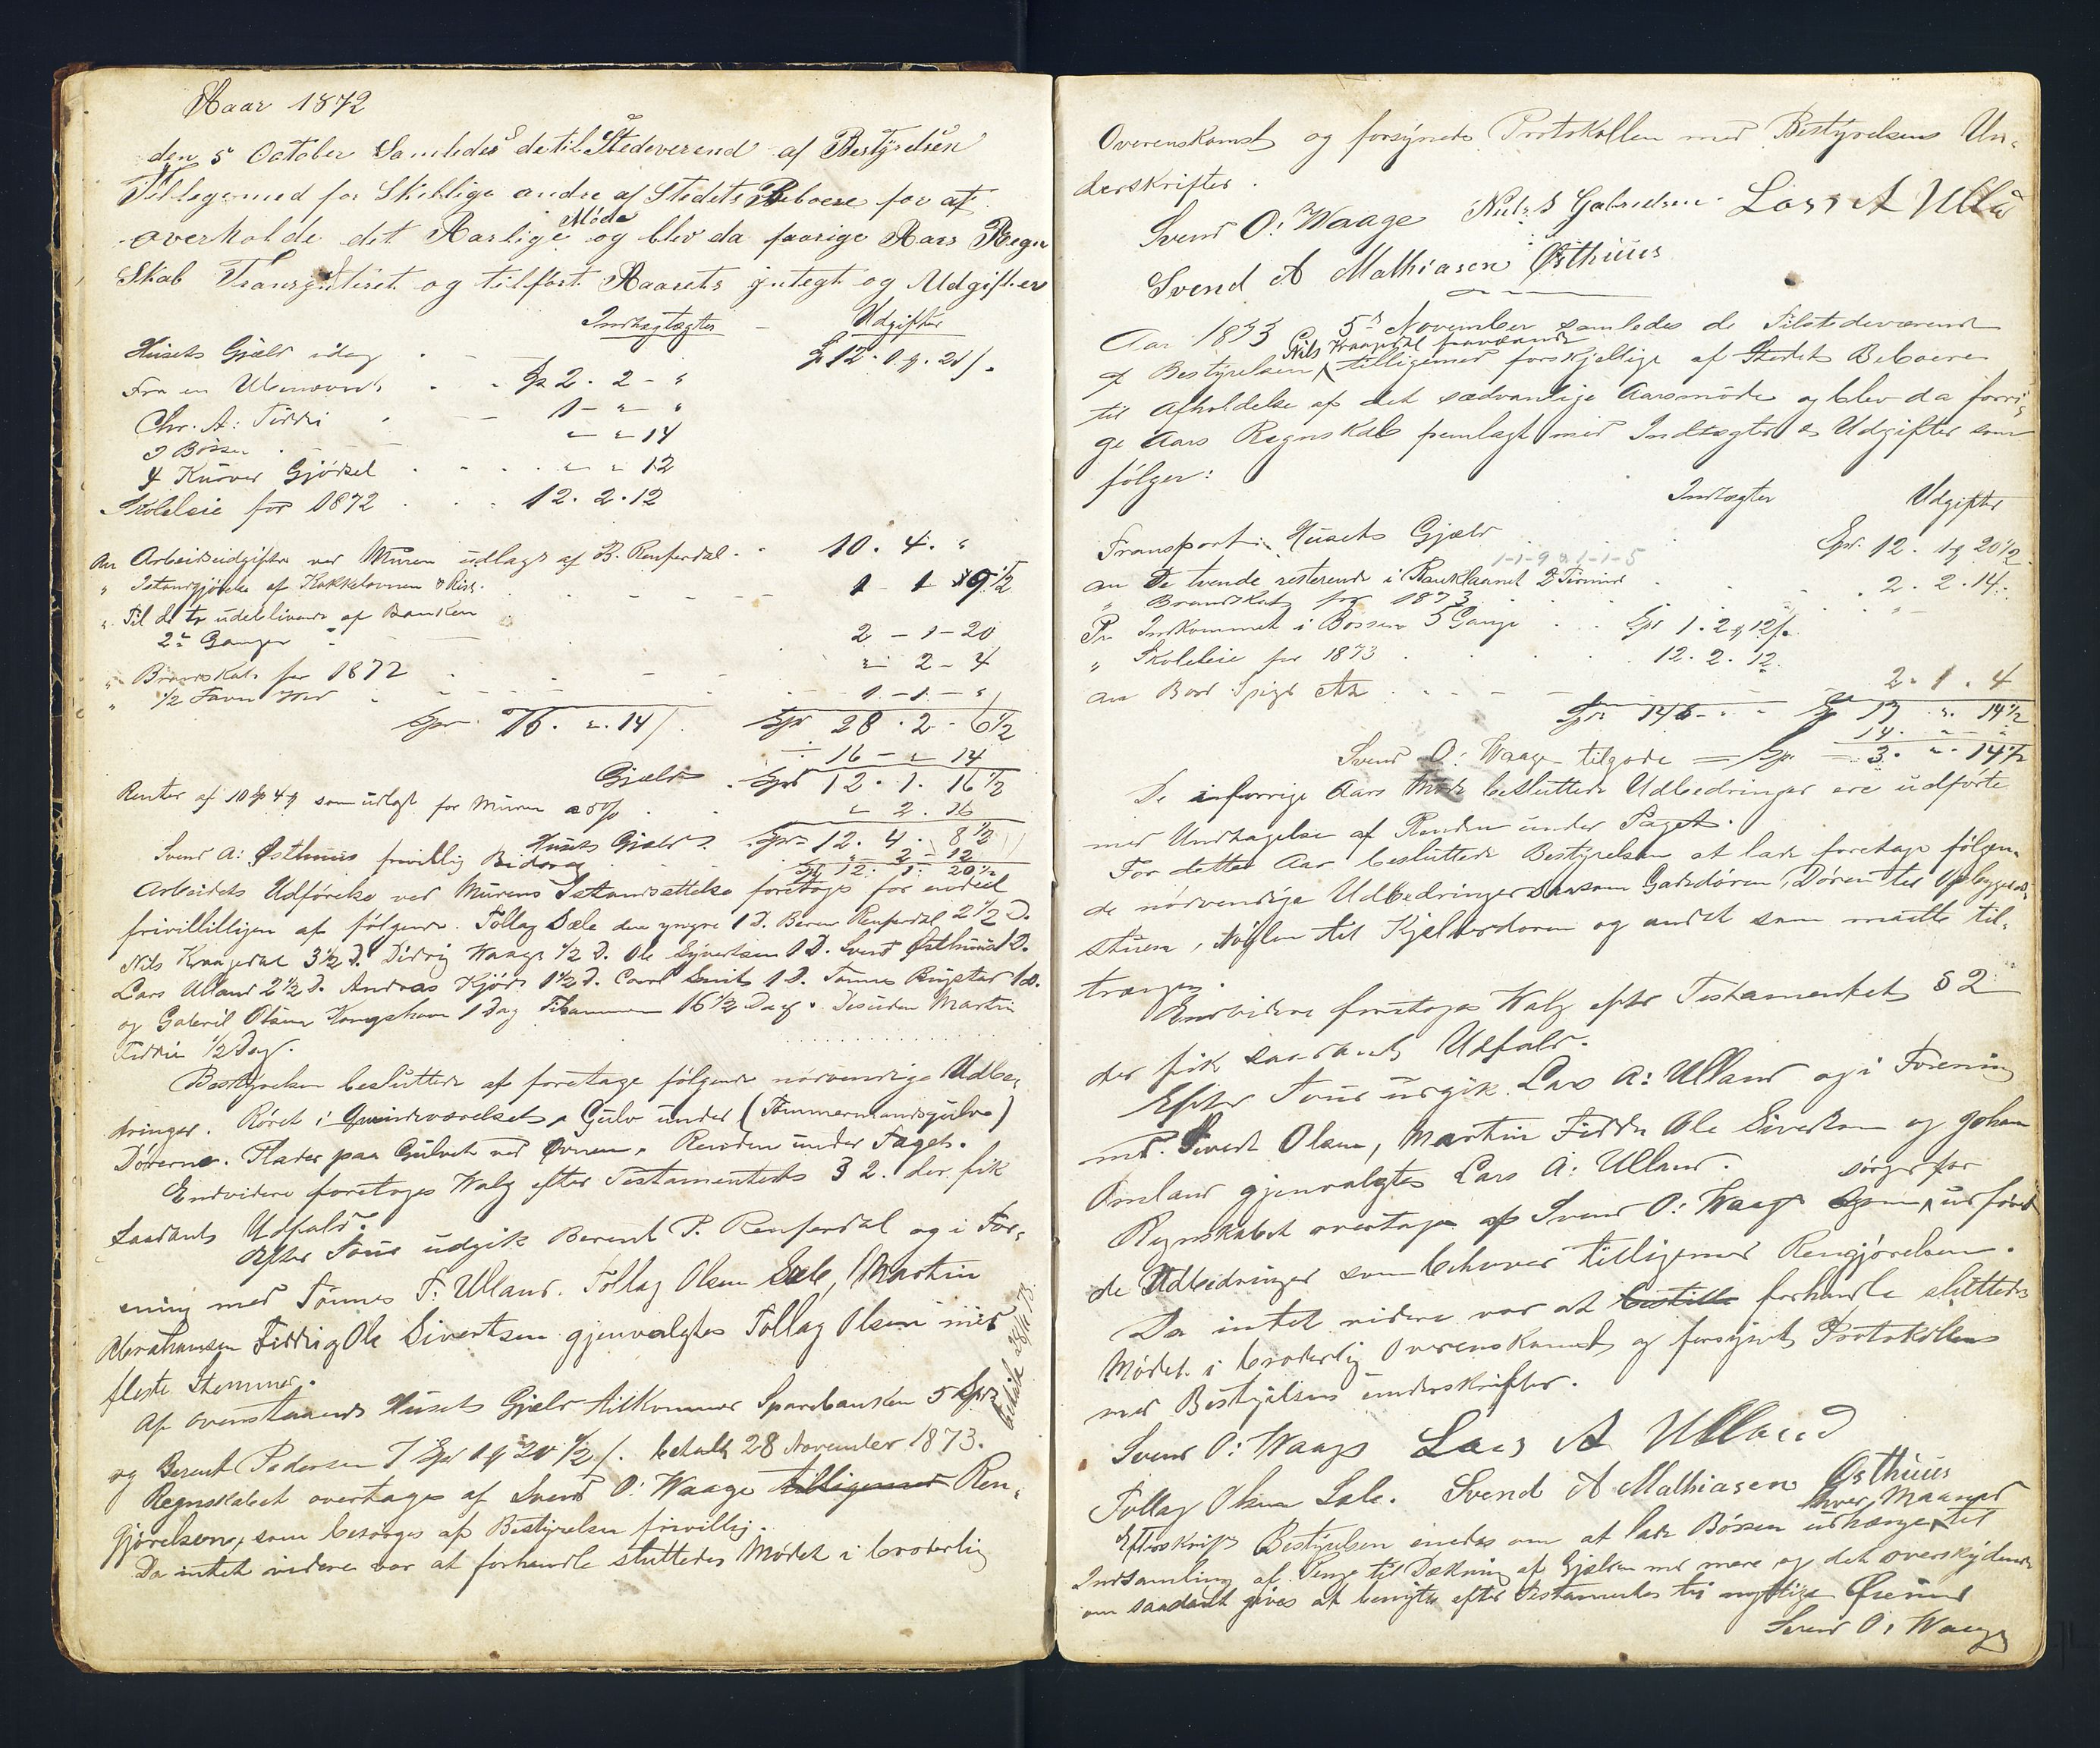 Aaar 1872
den 5 October Samledes de til Stedeverend af Bestyrelsen
Tillegemed for Skiellige andre af Stedets Beboere for at
overholde det Aarlige Møde og blev da faarige Aars Regn
Skab Transputeret og tilført Aaarets jntegt og Udgifter
Indtægtægter Udgifter
Husets Gjæld idag 12 - 1 - 20
Fra en Ubenævnt 2 - 2 - "
Chr. A: Fiddi 1 - " - "
3 Bøsser " " 14
4 Kurver Gjødsel " " 12
Skoleleie for 1872 12. 2. 12
An Arbeidsudgifter ved Muren udlagt af B. Renferdal 10. 4. "
" Istandgjørelse af Kakkelovnen 1 1 9 1/2
" Til de to udeblivende af Banken
2de Ganger 2 - 1 - 20
" Brandskat for 1872 " 2 - 4
" 1/2 Favn Ved 1 - 1 - "
Spd 16. ". 14 Spd 28. 2. 6 1/2
÷ 16 - " 14
Gjæld Spd 12. 1. 16 1/2
Renter af 10 Sp 4 # som udlagt for Muren a 5% " 2. 16
Husets Gjæld Spd 12. 4. 8 1/2
Svend A: Østhuus frivillig Bidrag " 2 - 12
Spd 12. 1. 20 1/2
Arbeidets Udførelse ved Murens Istandsættelse foretoges for endeel
frivilliligen af følgende. Tollag Sæle den yngre 1 D. Berent Renferdal 2 1/2 D.
Nils Kraagedal 3 1/2 D. Didrig Waage 1/2 D. Ole Syvertsen 1 D. Svend Østhuus 1 D.
Lars Ulland 2 1/2 D. Andreas Kjørs 1 1/2 D. Carl Smit 1 D. Tønnes Rugstad 1 D.
og Gabriel Olsen Kongshavn 1 Dag Tilsammen 16 1/2 Dag. Desuden Martin
Fiddie 1/2 Dag.
Bestyrelsen besluttede at foretage følgende nødvendige Udbe,
dringer. Røret i Quindeværelset, Gulv under (Tømmermandsgulve)
Dørerne. Plader paa Gulvet ved Ovnen. Renden under Taget.
Endvidere foretoges Valg efter Testamentets § 2. der fik
saadant Udfald.
Efter Tour udgik Berent P. Renferdal og i For,
ening med Tønnes T: Ulland. Tollag Olsen Sæle, Martin
Abrahamsen Fiddi og Ole Sivertsen gjenvalgtes Tollag Olsen med
fleste Stemmer.
Af ovenstaaende Husets Gjæld tilkommer Sparebanken 5 Spd
og Berent Pedersen 7 Spd 1 # 20 1/2 s. betalt 28 November 1873.
Regnskabet overtages af Svend O: Waage tilligemed Ren,
gjørelsen, som besørges af Bestyrelsen frivillig.
Da intet videre var at forhandle sluttedes Mødet i broderlig
Overenskomst og forsynede Protokollen med Bestyrelsens Un,
derskrifter.
Svend O: Waage Niels S Gabrielsen Lars A Ulland
Svend A Mathiasen Østhuus
Aar 1873 5te November samledes de Tilstedeværende
af Bestyrelsen Nils Kraagedal fraværende tilligemed forskjellige af Stedets Beboere
til Afholdelse af det sædvanlige Aarsmøde og blev da forri,
ge Aars Regnskab fremlagt med Indtægter & Udgifter som
følger:
Indtægter Udgifter
Transport Husets Gjæld Spd. 12. 1 # 20 1/2
1-1-9 & 1-1-5
an De tvende resterende i Banklaanet 2 Terminer 2. 2. 14
" Brandskat for 1873
Pr Indkommet i Bøssen 5 Gange Spd 1. 2 # 12 s.
" Skoleleie for 1873 12. 2. 12.
an Bord Spiger etc 2. 1. 4
Spd 14 - " - " Spd 17 ". 14 1/2
14. " - "
Svend O: Waage tilgode = Spd 3. ". 14 1/2
De i forrige Aars Møde besluttede Udbedringer ere udførte
med Undtagelse af Renden under Taget.
For dette Aar besluttede Bestyrelsen at lade foretage følgen,
de nødvendige Udbedringer saasom Gadedøren, Døren til Opbyggelses
stuen, Nøglen til Kjelderdoren og andet som maatte til,
trænges.
Endvidere foretoges Valg efter Testamentets § 2
der fik saadant Udfald.
Efter Tour udgik Lars A: Ulland og i Forening
med. Sivert Olsen, Martin Fiddi Ole Sivertsen og Johan
Omland gjenvalgtes Lars A: Ulland.
Regnskabet overtages af Svend O: Waage som sørger for udførel
de Udbedringer som behøver tilligemed Rengjørelsen.
Da intet videre var at bestille forhandle sluttedes
Mødet i broderlig Overenskomst og forsynet Protokollen
med Bestyrelsens underskrifter.
Svend O: Waage Lars A Ulland
Tollag Olsen Sæle. Svend A Mathiasen Østhuus
Efterskrift Bestyrelsen enedes om at lade Bøssen udhænge hver Maaned til
Indsamling af Penge til Dækning af Gjælden med mere og det overskydende
om saadant gives at benyttes efter Testamentet til nyttige Øiemed
Svend O: Waage